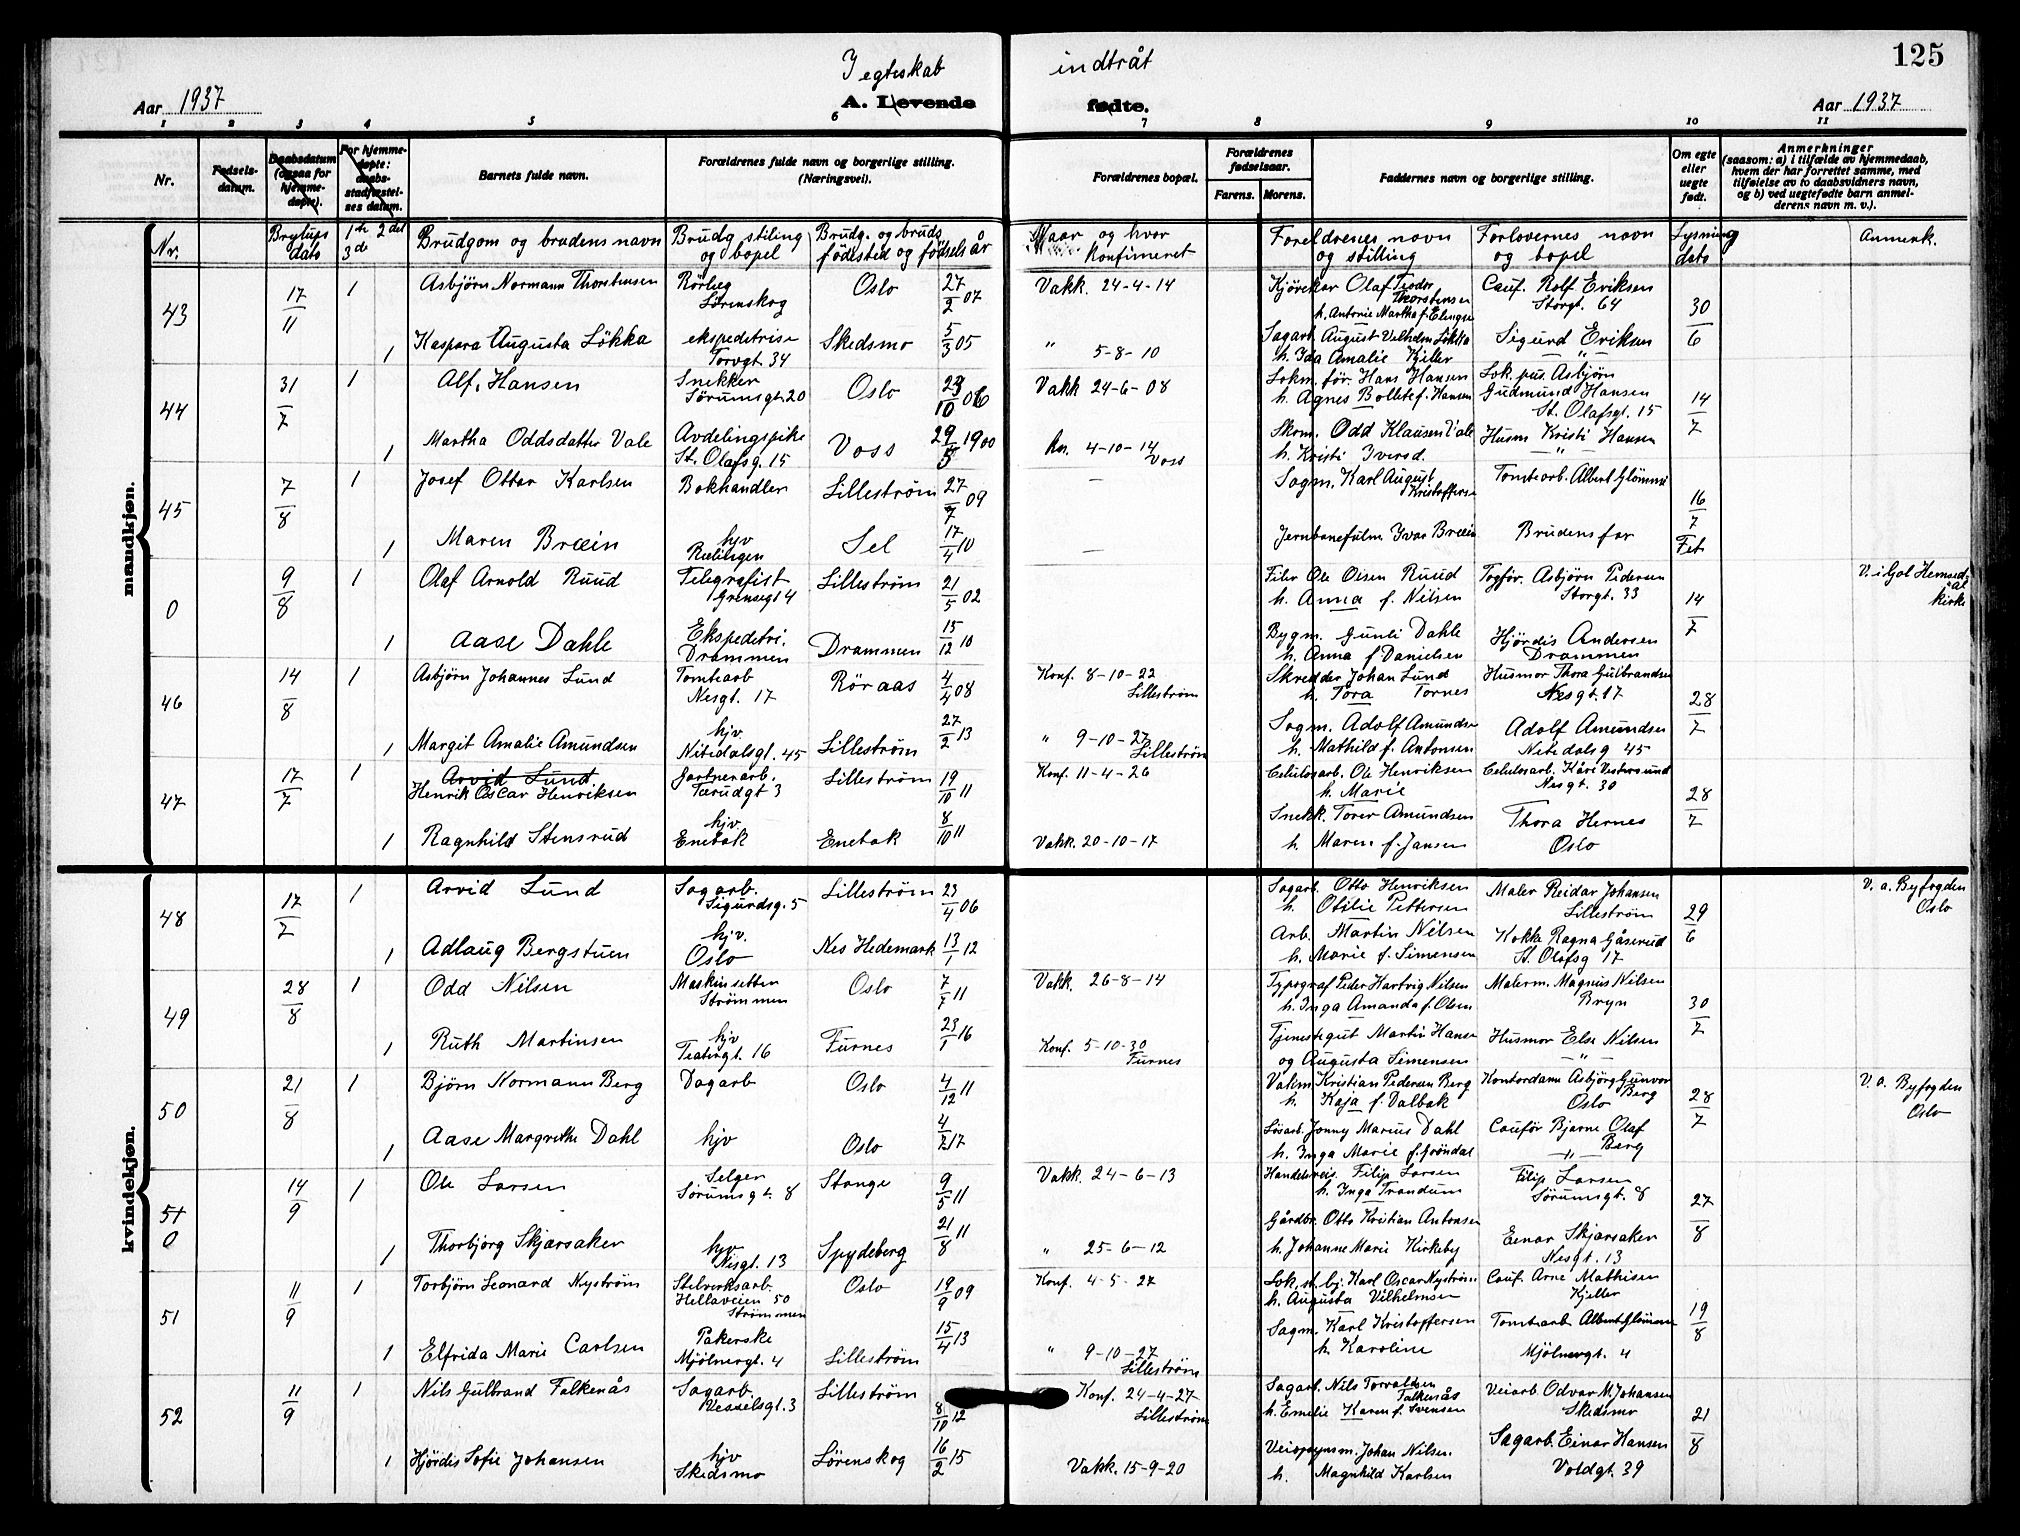 125
I egteskab indtråt
Aar 1937 A. Levende fødte. Aar 1937
1 2 3 4 5 6 7 8 9 10 11
Nr. Fødsels-datum. Daabsdatum (ogsaa for hjemme-døpte). For hjemme-døpte: daabs-stadfæstel-ses datum. Barnets fulde navn. Forældrenes fulde navn og borgerlige stilling. (Næringsvei). Forældrenes bopæl. Forældrenes fødselsaar. Farens. Morens. Faddernes navn og borgerlige stilling. Om egte eller uegte født. Anmerkninger (saasom: a) i tilfælde av hjemmedaab, hvem der har forrettet samme, med tilføielse av to daabsvidners navn, og b) ved uegtefødte barn anmel-derens navn m. v.).
Nr. Bryllups dato 1ste 2det 3de Brudgom og brudens navn Brudg stiling og bopel Brudg. og bruds fødested og fødsels år Naar og hvor Konfirmeret Foreldrenes navn og stilling Forlovernes navn og bopel Lysning dato Anmerk.
mandkjøn.
43 17/11 1 Asbjörn Normann Thorstensen Rörleg Lörenskog Oslo 27/2 07 Vakk. 24-4-14 Kjörekar Olaf Teodor Thorstensen h. Antonie Martha f. Elingse Cauf. Rolf Eriksen Storgt. 64 30/6
1 Kaspara Augusta Lökka ekspeditrise Torvgt. 34 Skedsmo 5/3 05 " 5-8-10 Sagarb. August Vilhelm Lökka h. Ida Amalie Kjeller Sigurd Eriksen — " —
44 31/7 1 Alf. Hansen Snekker Sörumsgt. 20 Oslo 23/10 06 Vakk 24-6-08 Lokm. för. Hans Hansen h. Agnes Bollete f. Hansen Lok. pus. Asbjörn Gudmund Hansen St. Olafsgt. 15 14/7
1 Martha Oddsdatter Vale Avdelingspike St. Olafsg. 15 Voss 29/5 1900 4-10-14 Voss Skom. Odd Klausen Vale h. Kristi Iversd. Husm Kristi Hansen — " —
45 7/8 1 Josef Ottar Karlsen Bokhandler Lilleström 27/7 09 — Sagm. Karl August Kristoffersen Tomtearb. Albert Glömmi 16/7 Fet
1 Maren Bræin hjv Rælingen Sel 17/4 10 — Jernbanefulm Ivar Bræin Brudens far
0 9/8 1 Olaf Arnold Ruud Telegrafist Grensegt 4 Lilleström 21/5 02 Filer Ole Olsen Ruud h. Anna f. Nilsen Togför. Asbjörn Pedersen Storgt. 33 14/7 V. i Gol Hemsedal kirke
1 Aase Dahle Ekspeditri. Drammen Drammen 15/12 10 Bygm. Gunli Dahle h. Anna f. Danielsen Hjördis Andersen Drammen
46 14/8 1 Asbjörn Johannes Lund Tomtearb Nesgt. 17 Röraas 4/4 08 Konf. 8-10-22 Lilleström Skredder Johan Lund h. Tora Tornes Husmor Thora Gulbrandsen Nesgt. 17 28/7
1 Margit Amalie Amundsen hjv. Nitedalsgt. 45 Lilleström 27/2 13 " 9-10-27 Lilleström Sagm. Adolf Amundsen h. Mathild f. Antonsen Adolf Amundsen Nitedalsg 45
47 17/7 1 Arvid Lund Henrik Oscar Henriksen Gartnerarb. Tærudgt 3 Lilleström 19/10 11 Konf. 11-4-26 Celulosarb. Ole Henriksen h. Marie Celulosarb. Kåre Vestersund Nesgt. 30 28/7
1 Ragnhild Stensrud hjv. Enebak Enebak 8/10 11 Vakk. 20-10-17 Snekk. Torer Amundsen h. Maren f. Jansen Thora Hernes Oslo
kvindekjøn.
48 17/7 1 Arvid Lund Sagarb. Sigurdsg. 5 Lilleström 23/4 06 Sagarb. Otto Henriksen h. Otilie Pettersen Maler Reidar Johansen Lilleström 29/6 V. a. Byfogden Oslo
1 Adlaug Bergstuen hjv. Oslo Nes Hedemark 13/1 12 Arb. Martin Nilsen h. Marie f. Simensen Kokke Ragna Gåserud St. Olafsg 17
49 28/8 1 Odd Nilsen Maskinsetter Strömmen Oslo 7/7 11 Vakk. 26-8-14 Typograf Peder Hartvig Nilsen h. Inga Amanda f. Olsen Malerm. Magnus Nilsen Bryn 30/7
1 Ruth Martinsen hjv Teatergt. 16 Furnes 23/1 16 Konf. 5-10-30 Furnes Tjenestegut Martin Hansen og Augusta Simensen Husmor Else Nilsen — " —
50 21/8 1 Björn Normann Berg Dagarb Oslo 4/12 11 Vakm Kristian Pedersen Berg h. Kaja f. Dalbak Kontordame Asbjörg Gunvor Berg Oslo 28/7 V. a. Byfogden Oslo
1 Aase Margrethe Dahl hjv Oslo 4/7 17 Lösarb. Jonny Marius Dahl h. Inga Marie f. Gröndal Cauför Bjarne Olaf Berg — " —
51 0 14/9 1 Ole Larsen Selger Sörumsgt. 8 Stange 9/5 11 Vakk. 24-6-13 Handelsreis. Filip Larsen h. Inga Trandum Filip Larsen Sörumsgt. 8 27/8
1 Thorbjörg Skjærsaker hjv Nesgt. 13 Spydeberg 21/8 11 " 25-6-12 Gårdbr. Otto Kristian Antonsen h. Johanne Marie Kirkeby Einar Skjærsaker Nesgt. 13
51 11/9 1 Torbjörn Leonard Nyström Stålverksarb. Hellaveien 50 Strömmen Oslo 19/9 09 Konf. 4-5-27 Lok. st. bj. Karl Oscar Nyström h. Augusta Vilhelmsen Cauf. Arne Mathisen Kjeller 19/8
1 Elfrida Marie Carlsen Pakerske Mjölnergt. 4 Lilleström 15/4 13 " 9-10-27 Lilleström Sagm. Karl Kristoffersen h. Karoline Tomtearb Albert Glömmen Mjölnergt. 4
52 11/9 1 Nils Gulbrand Falkenås Sagarb. Vesselsgt. 3 Lilleström 8/10 12 Konf. 24-4-27 Lilleström Sagarb. Nils Torvaldsen Falkenås h. Emelie Karen f. Svensen Veiarb. Odvar M. Johansen Skedsmo 21/8
1 Hjördis Sofie Johansen hjv Skedsmo Lörenskog 16/2 15 Vakk. 15-9-20 Veiopsynsm. Johan Nilsen h. Magnhild Karlsen Sagarb. Einar Hansen Voldgt. 39